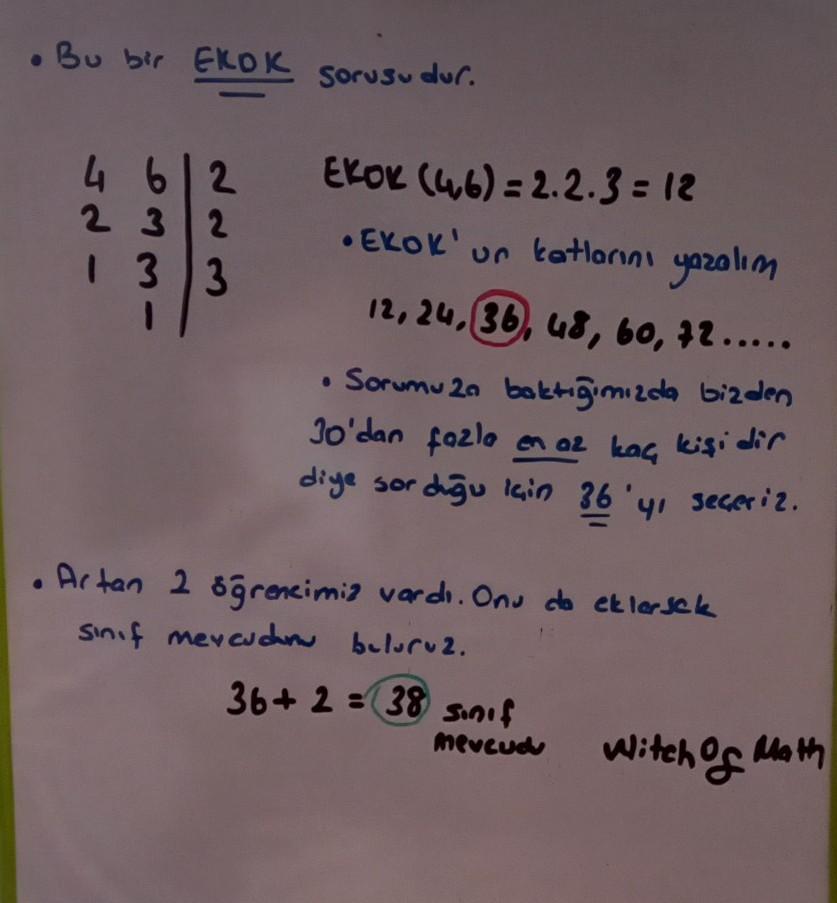 • Bu bir EKOK sorusudur.
4 6 | 2
2 3 | 2
1 3 | 3
1 |
EKOK (4,6) = 2.2.3 = 12
• EKOK'un katlarını yazalım
12, 24, 36, 48, 60, 72.....
• Sorumuza baktığımızda bizden
30'dan fazla en az kaç kişidir
diye sorduğu için 36'yı seçeriz.
• Artan 2 öğrencimiz vardı. Onu da eklersek
sınıf mevcudunu buluruz.
36 + 2 = 38 sınıf
mevcudu
WitchOf Math